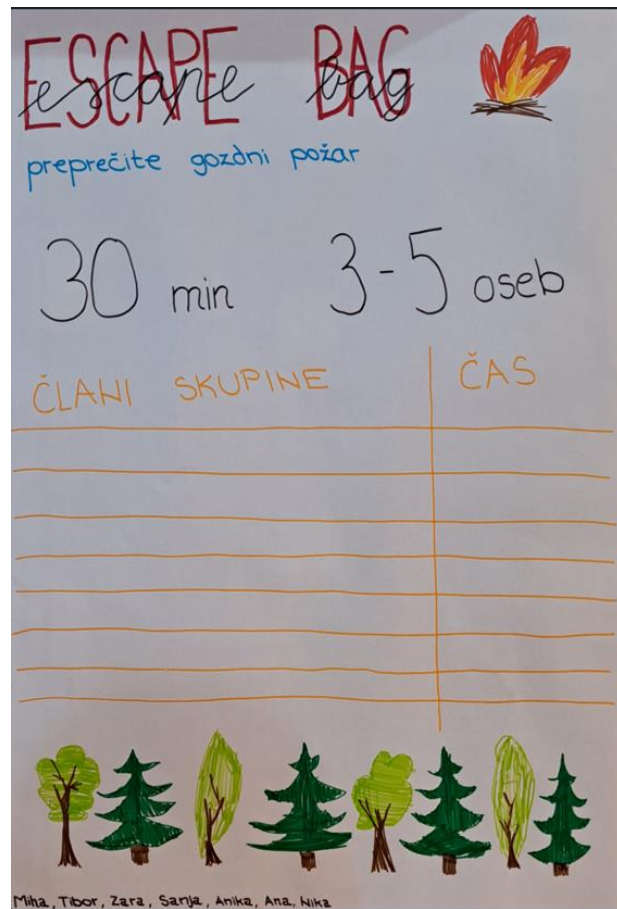 ESCAPE BAG
escape bag
preprečite gozdni požar
30 min 3-5 oseb
ČLANI SKUPINE ČAS
Miha, Tibor, Zara, Sanja, Anika, Ana, Nika